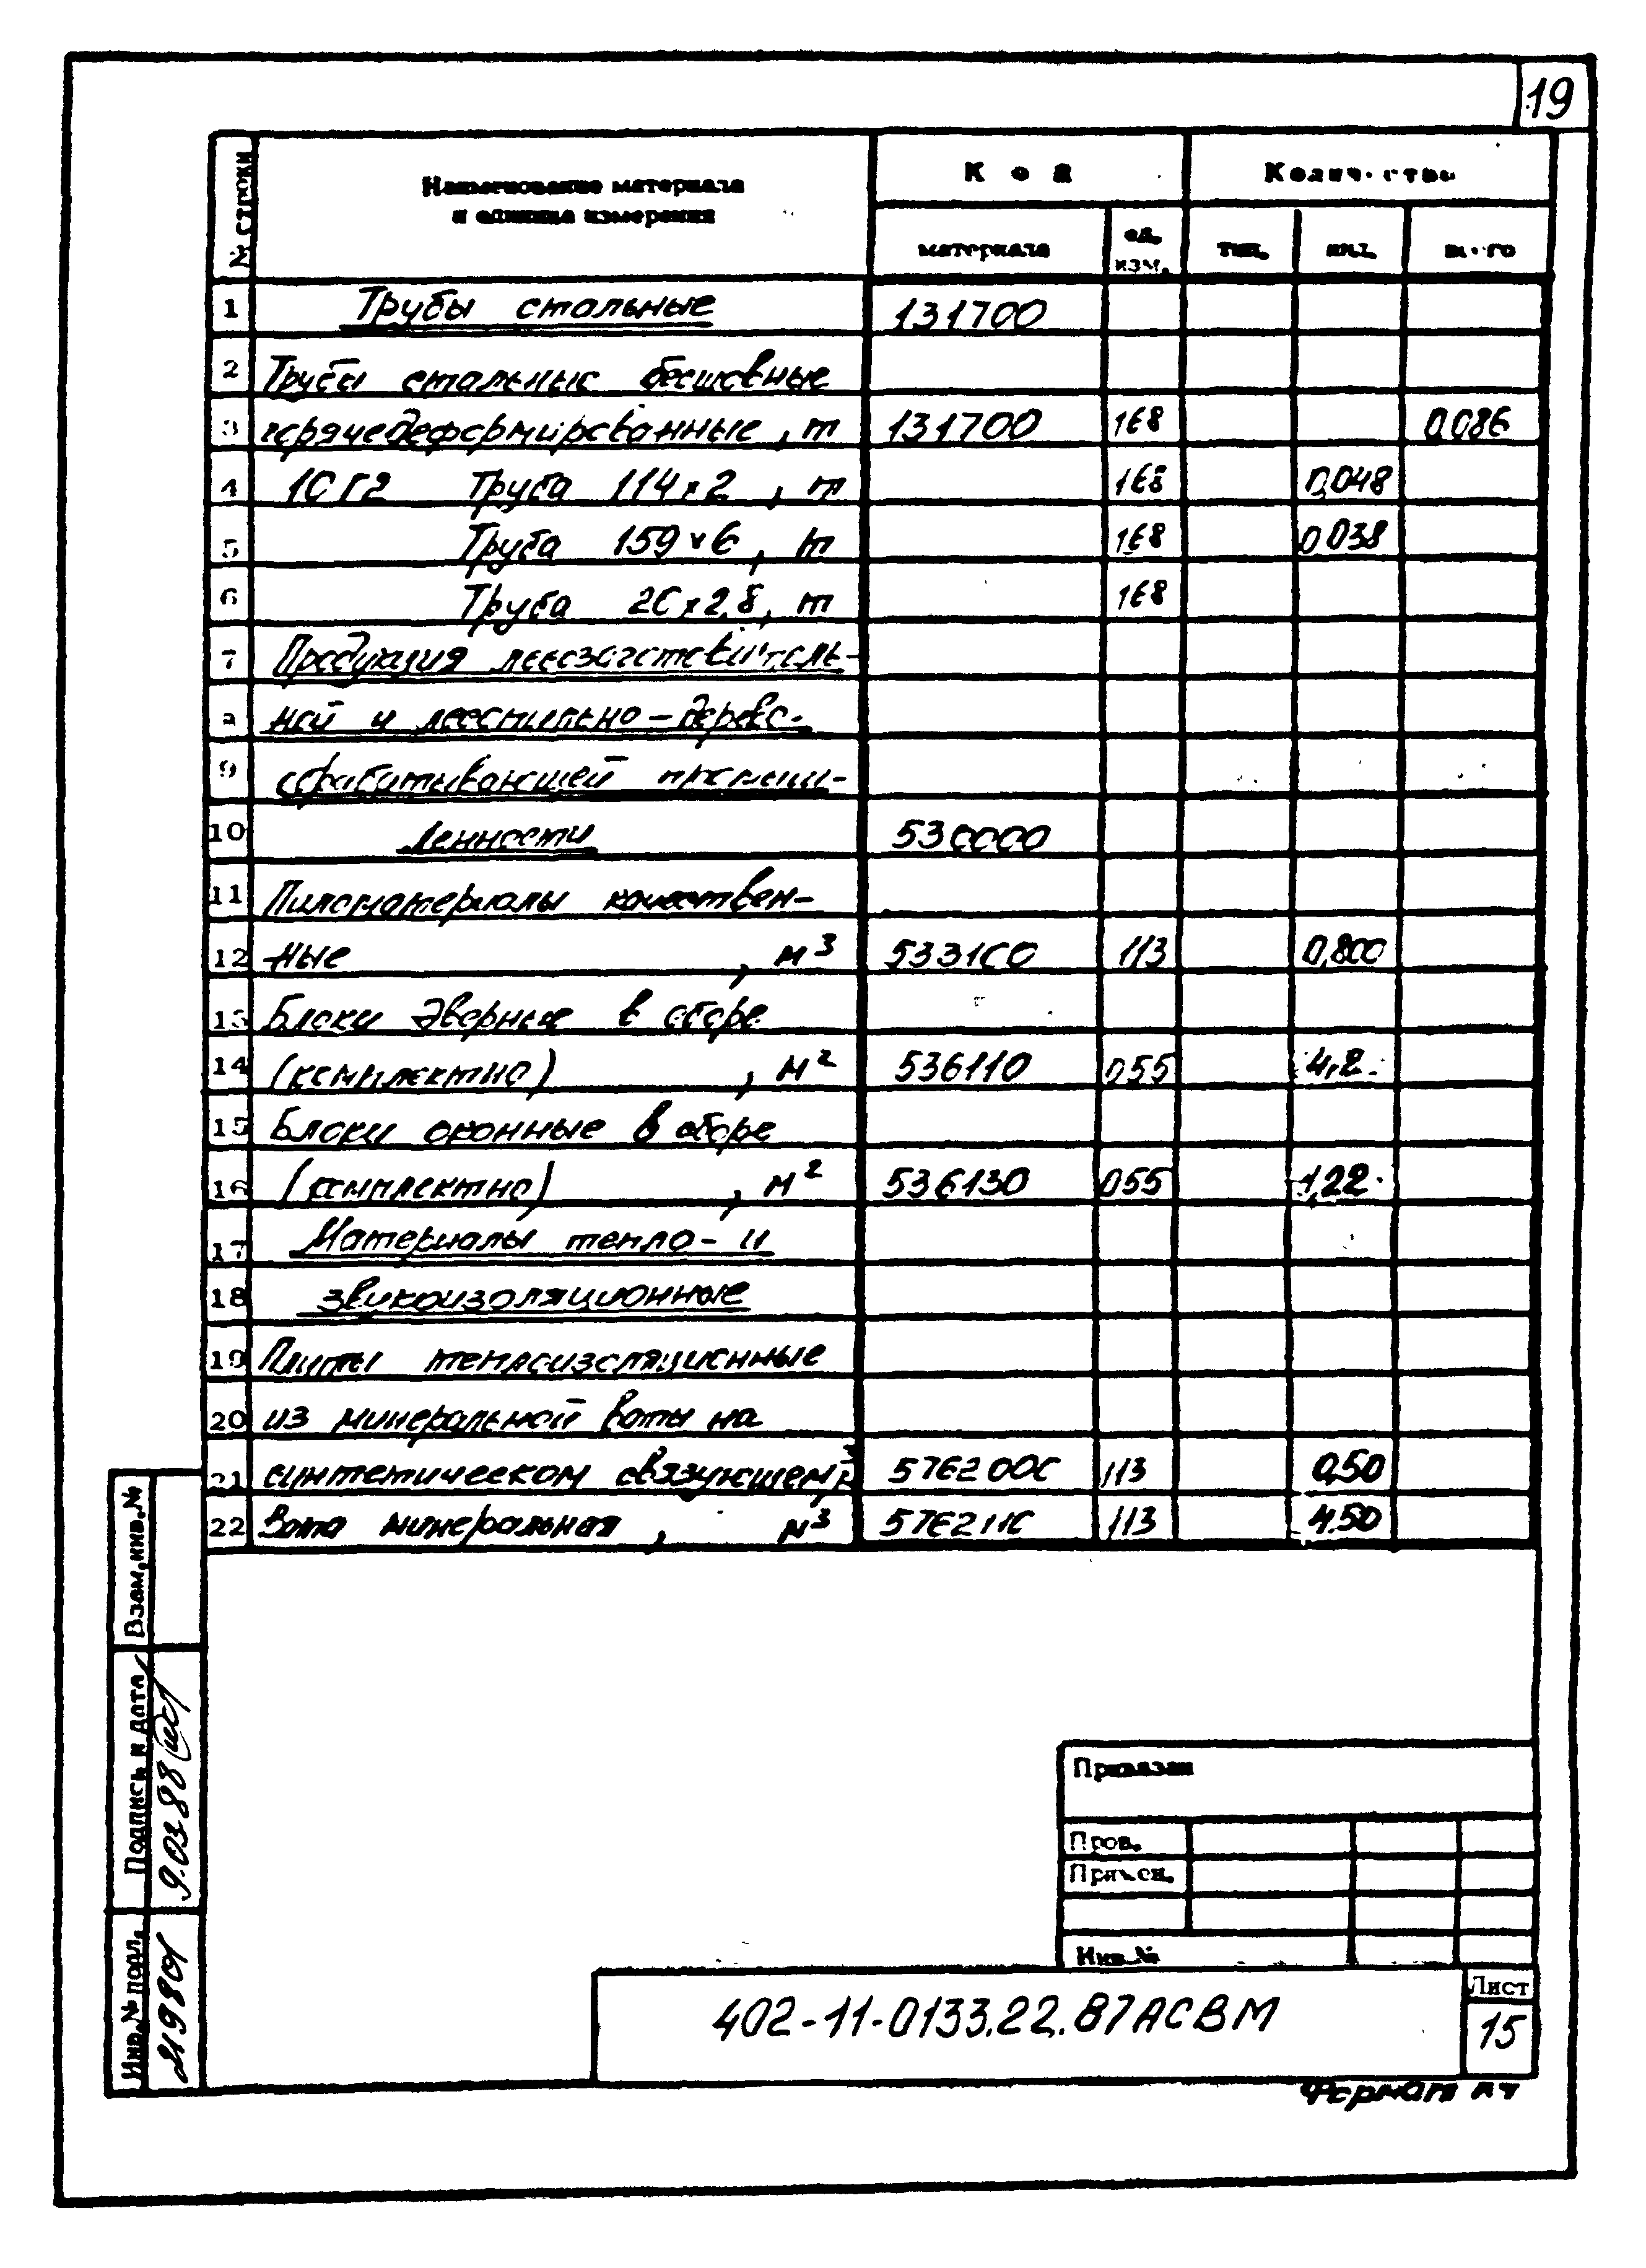 19
№ строки
Наименование материала
и единица измерения
Код
Количество
материала
ед.
изм.
тип.
инд.
всего
1 Трубы стальные 131700
2 Трубы стальные бесшовные
3 горячедеформированные, т 131700 168 0,086
4 10Г2 Труба 114х2, т 168 0,048
5 Труба 159х6, т 168 0,038
6 Труба 20х2,8, т 168
7 Продукция лесозаготовитель-
8 ной и лесопильно-дерево-
9 обрабатывающей промыш-
10 ленности 530000
11 Пиломатериалы качествен-
12 ные, м³ 533100 113 0,800
13 Блоки дверные в сборе
14 (комплектно), м² 536110 055 4,2
15 Блоки оконные в сборе
16 (комплектно), м² 536130 055 1,22
17 Материалы тепло- и
18 звукоизоляционные
19 Плиты теплоизоляционные
20 из минеральной ваты на
21 синтетическом связующем, м³ 5762000 113 0,50
22 Вата минеральная, м³ 576211С 113 4,50
Взам.инв.№
Подпись и дата
9.03.88
Инв.№ подл.
Привязан
Пров.
Инв.№
402-11-0133.22.87АСВМ
Лист
15
Формат А4